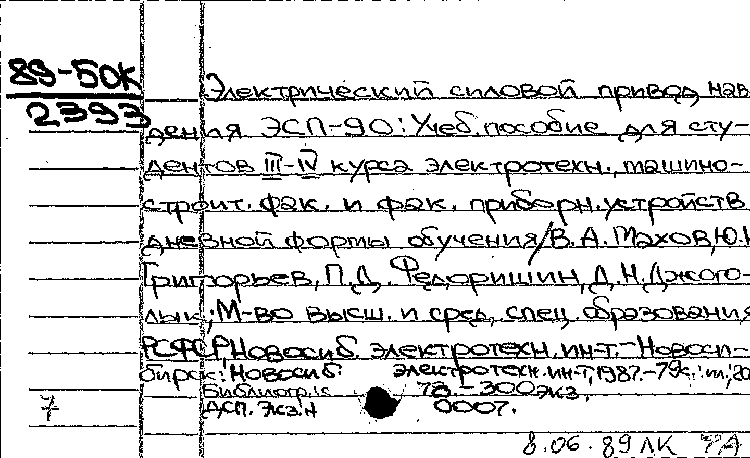 89-50К
2393
Электрический силовой привод нав
дения ЭСП-90: Учеб. пособие для сту-
дентов III-IV курса электротехн., машино-
строит. фак. и фак. приборн. устройств
дневной формы обучения/В.А. Махов, Ю.Н
Григорьев, П.Д. Федоришин, Д.Н. Джого-
лык; М-во высш. и сред. спец. образования
РСФСР, Новосиб. электротехн. ин-т. - Новоси-
бирск: Новосиб. электротехн. ин-т, 1987. - 79с.: ил.; 20
Библиогр.: с 78. - 300 экз.
ДСП. Экз. N 0007.
7
8.06.89 ЛК